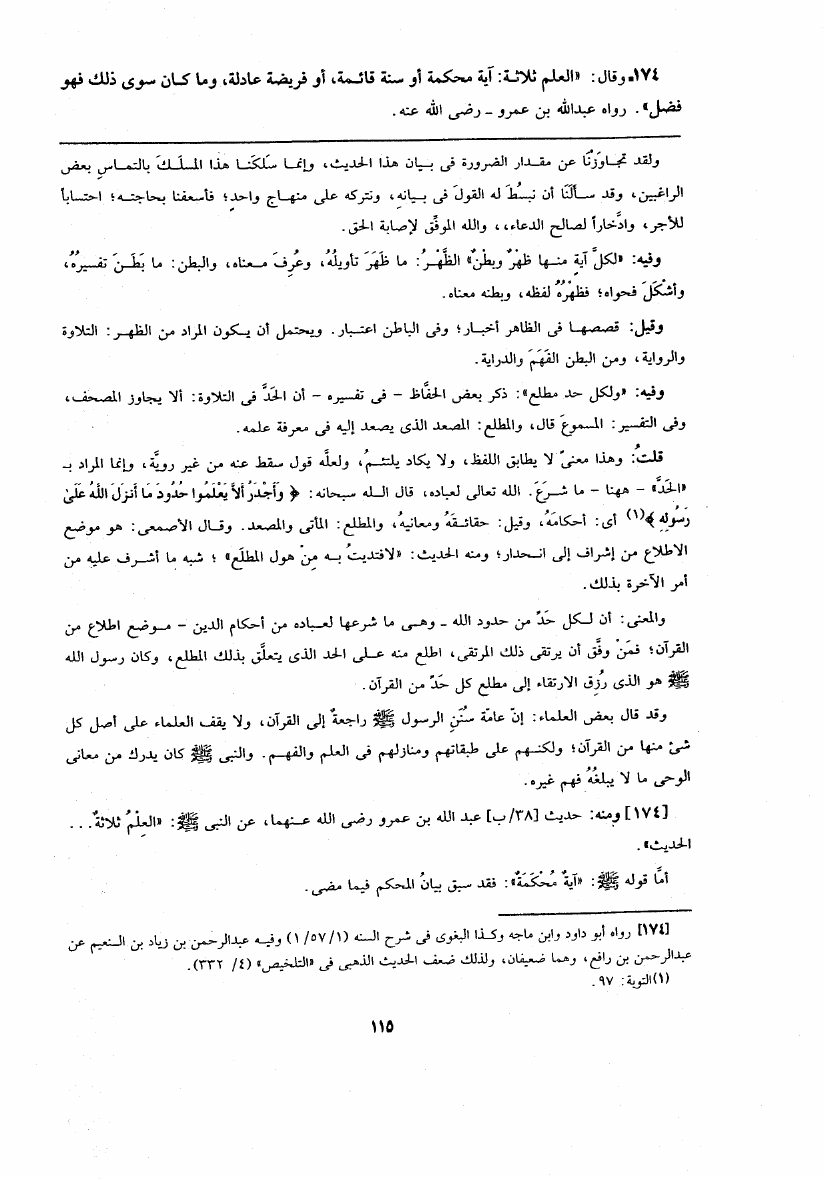 ١٧٤ـ وقال: «العلم ثلاثة: آية محكمة أو سنة قائمة، أو فريضة عادلة، وما كان سوى ذلك فهو
فضل». رواه عبدالله بن عمرو ـ رضى الله عنه.
ولقد تجاوَزْنَا عن مقدار الضرورة فى بيان هذا الحديث، وإنما سَلَكنا هذا المسلَكَ بالتماسِ بعض
الراغبين، وقد سألَنَا أن نبسُطَ له القولَ فى بيانِه، ونتركه على منهاج واحدٍ؛ فأسعفنا بحاجته؛ احتساباً
للأجر، وادِّخاراً لصالح الدعاء،، والله الموفِّق لإصابة الحق.
وفيه: «لكلِّ آيةٍ منها ظهْرٌ وبطنٌ» الظَّهْرُ: ما ظَهَرَ تأويلُهُ، وعُرِفَ معناه، والبطن: ما بَطَنَ تفسيرُهُ،
وأشْكَلَ فحواه؛ فظهْرُهُ لفظه، وبطنه معناه.
وقيل: قصصها فى الظاهر أخبار؛ وفى الباطن اعتبار. ويحتمل أن يكون المراد من الظهر: التلاوة
والرواية، ومن البطن الفَهمَ والدراية.
وفيه: «ولكل حد مطلع»: ذكر بعض الحفَّاظ – فى تفسيره – أن الحَدَّ فى التلاوة: ألا يجاوز المصحف،
وفى التفسير: المسموعَ قال، والمطلع: المصعد الذى يصعد إليه فى معرفة علمه.
قلتُ: وهذا معنىً لا يطابق اللفظ، ولا يكاد يلتئمُ، ولعلَّه قول سقط عنه من غير رويَّة، وإنما المراد بـ
«الحَدِّ» – ههنا – ما شرعَ. الله تعالى لعباده، قال الله سبحانه: ﴿ وَأَجْدَرُ أَلاَّ يَعْلَمُوا حُدُودَ مَا أَنزَلَ اللَّهُ عَلَىٰ
رَسُولِهِ ﴾(١) أى: أحكامَهُ، وقيل: حقائقَهُ ومعانيهُ، والمطلع: المأتى والمصعد. وقال الأصمعى: هو موضع
الاطلاع من إشراف إلى انحدار؛ ومنه الحديث: «لافتديتُ به مِنْ هول المطلَع» ؛ شبه ما أشرف عليه من
أمر الآخرة بذلك.
والمعنى: أن لكل حَدٍّ من حدود الله ـ وهى ما شرعها لعباده من أحكام الدين – موضع اطلاع من
القرآن؛ فمَنْ وفِّق أن يرتقى ذلك المرتقى، اطلع منه على الحد الذى يتعلَّق بذلك المطلع، وكان رسول الله
ﷺ هو الذى رُزق الارتقاء إلى مطلع كل حَدٍّ من القرآن.
وقد قال بعض العلماء: إنّ عامّة سُنَنِ الرسول ﷺ راجعةٌ إلى القرآن، ولا يقف العلماء على أصل كل
شئ منها من القرآن؛ ولكنهم على طبقاتهم ومنازلهم فى العلم والفهم. والنبى ﷺ كان يدرك من معانى
الوحى ما لا يبلغُهُ فهم غيره.
[١٧٤] ومنه: حديث [٣٨/ب] عبد الله بن عمرو رضى الله عنهما، عن النبى ﷺ: «العلْمُ ثلاثةٌ...
الحديث».
أمَّا قوله ﷺ: «آيةٌ مُحْكَمَةٌ»: فقد سبق بيانُ المحكم فيما مضى.
[١٧٤] رواه أبو داود وابن ماجه وكذا البغوى فى شرح السنه (١/٥٧/١) وفيه عبدالرحمن بن زياد بن النعيم عن
عبدالرحمن بن رافع، وهما ضعيفان، ولذلك ضعف الحديث الذهبى فى «التلخيص» (٤/ ٣٣٢).
(١)التوبة: ٩٧.
١١٥